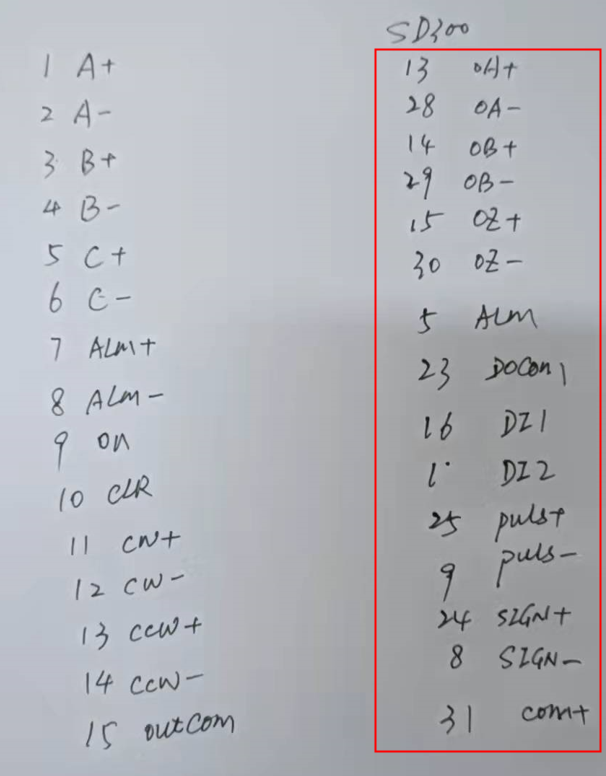 SD300
1 A+ 13 OA+
2 A- 28 OA-
3 B+ 14 OB+
4 B- 29 OB-
5 C+ 15 OZ+
6 C- 30 OZ-
7 ALM+ 5 ALM
8 ALM- 23 DOCOM1
9 ON 16 DI1
10 CLR 1 DI2
11 CW+ 25 puls+
12 CW- 9 puls-
13 CCW+ 24 SIGN+
14 CCW- 8 SIGN-
15 outCOM 31 COM+